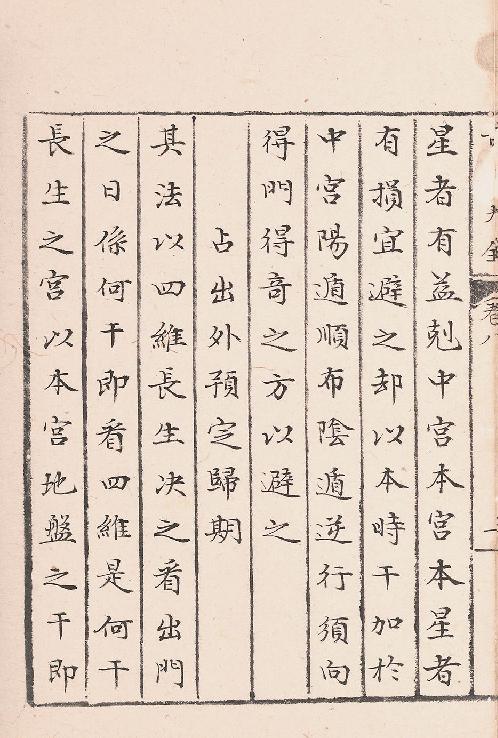 卷八
星者有益剋中宮本宮本星者
有損宜避之却以本時干加於
中宮陽遁順布陰遁逆行須向
得門得竒之方以避之
占出外預定歸期
其法以四維長生决之看出門
之日係何干即看四維是何干
長生之宮以本宮地盤之干即